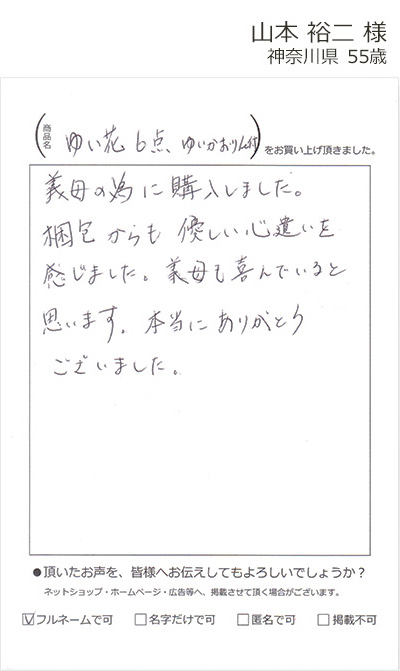 山本 裕二 様
神奈川県 55歳
(商品名 ゆい花 6点、ゆいかおりん付)をお買い上げ頂きました。
義母の為に購入しました。
梱包からも 優しい心遣いを
感じました。義母も喜んでいると
思います。本当にありがとう
ございました。
●頂いたお声を、皆様へお伝えしてもよろしいでしょうか?
ネットショップ・ホームページ・広告等へ、掲載させて頂く場合がございます。
☑フルネームで可 □名字だけで可 □匿名で可 □掲載不可